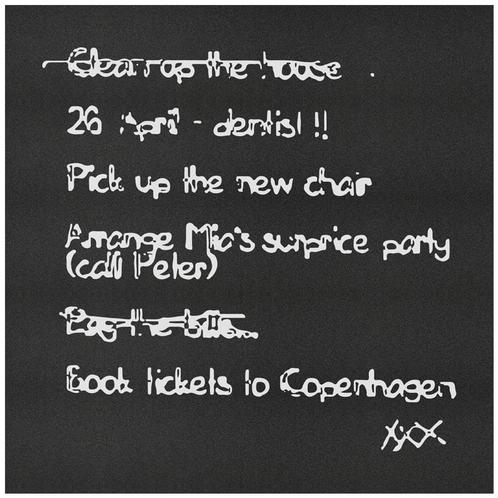 Clean up the house
26 April - dentist !!
Pick up the new chair
Arrange Mia's surprice party
(call Peter)
Pay the bills
Book tickets to Copenhagen